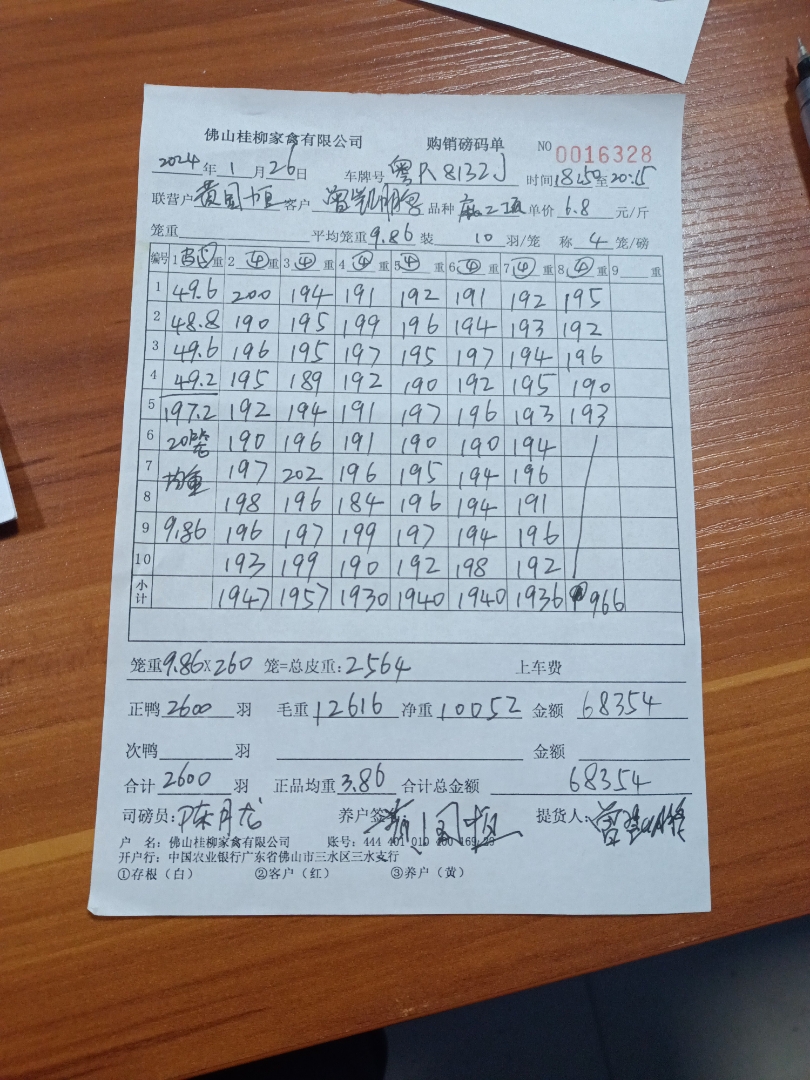 佛山桂柳家禽有限公司 购销磅码单 NO 0016328
2024年1月26日 车牌号 粤R8132J 时间18:50至20:15
联营户 黄国恒 客户 品种 单价 6.8 元/斤
笼重 平均笼重9.86 装 10 羽/笼 称 4 笼/磅
编号 1 重 2 ④ 重 3 ④ 重 4 ④ 重 5 ④ 重 6 ④ 重 7 ④ 重 8 ④ 重 9 重
1 49.6 200 194 191 192 191 192 195
2 48.8 190 195 199 196 194 193 192
3 49.6 196 195 197 195 197 194 196
4 49.2 195 189 192 190 192 195 190
5 197.2 192 194 191 197 196 193 193
6 20笼 190 196 191 190 190 194
7 均重 197 202 196 195 194 196
8 198 196 184 196 194 191
9 9.86 196 197 199 197 194 196
10 193 199 190 192 198 192
小计 1947 1957 1930 1940 1940 1936 966
笼重9.86×260 笼=总皮重:2564 上车费
正鸭 2600 羽 毛重 12616 净重 10052 金额 68354
次鸭 羽 金额
合计 2600 羽 正品均重 3.86 合计总金额 68354
司磅员:陈月龙 养户签 黄国恒 提货人:
户 名:佛山桂柳家禽有限公司 账号:444 401 010 400 169
开户行:中国农业银行广东省佛山市三水区三水支行
①存根(白) ②客户(红) ③养户(黄)